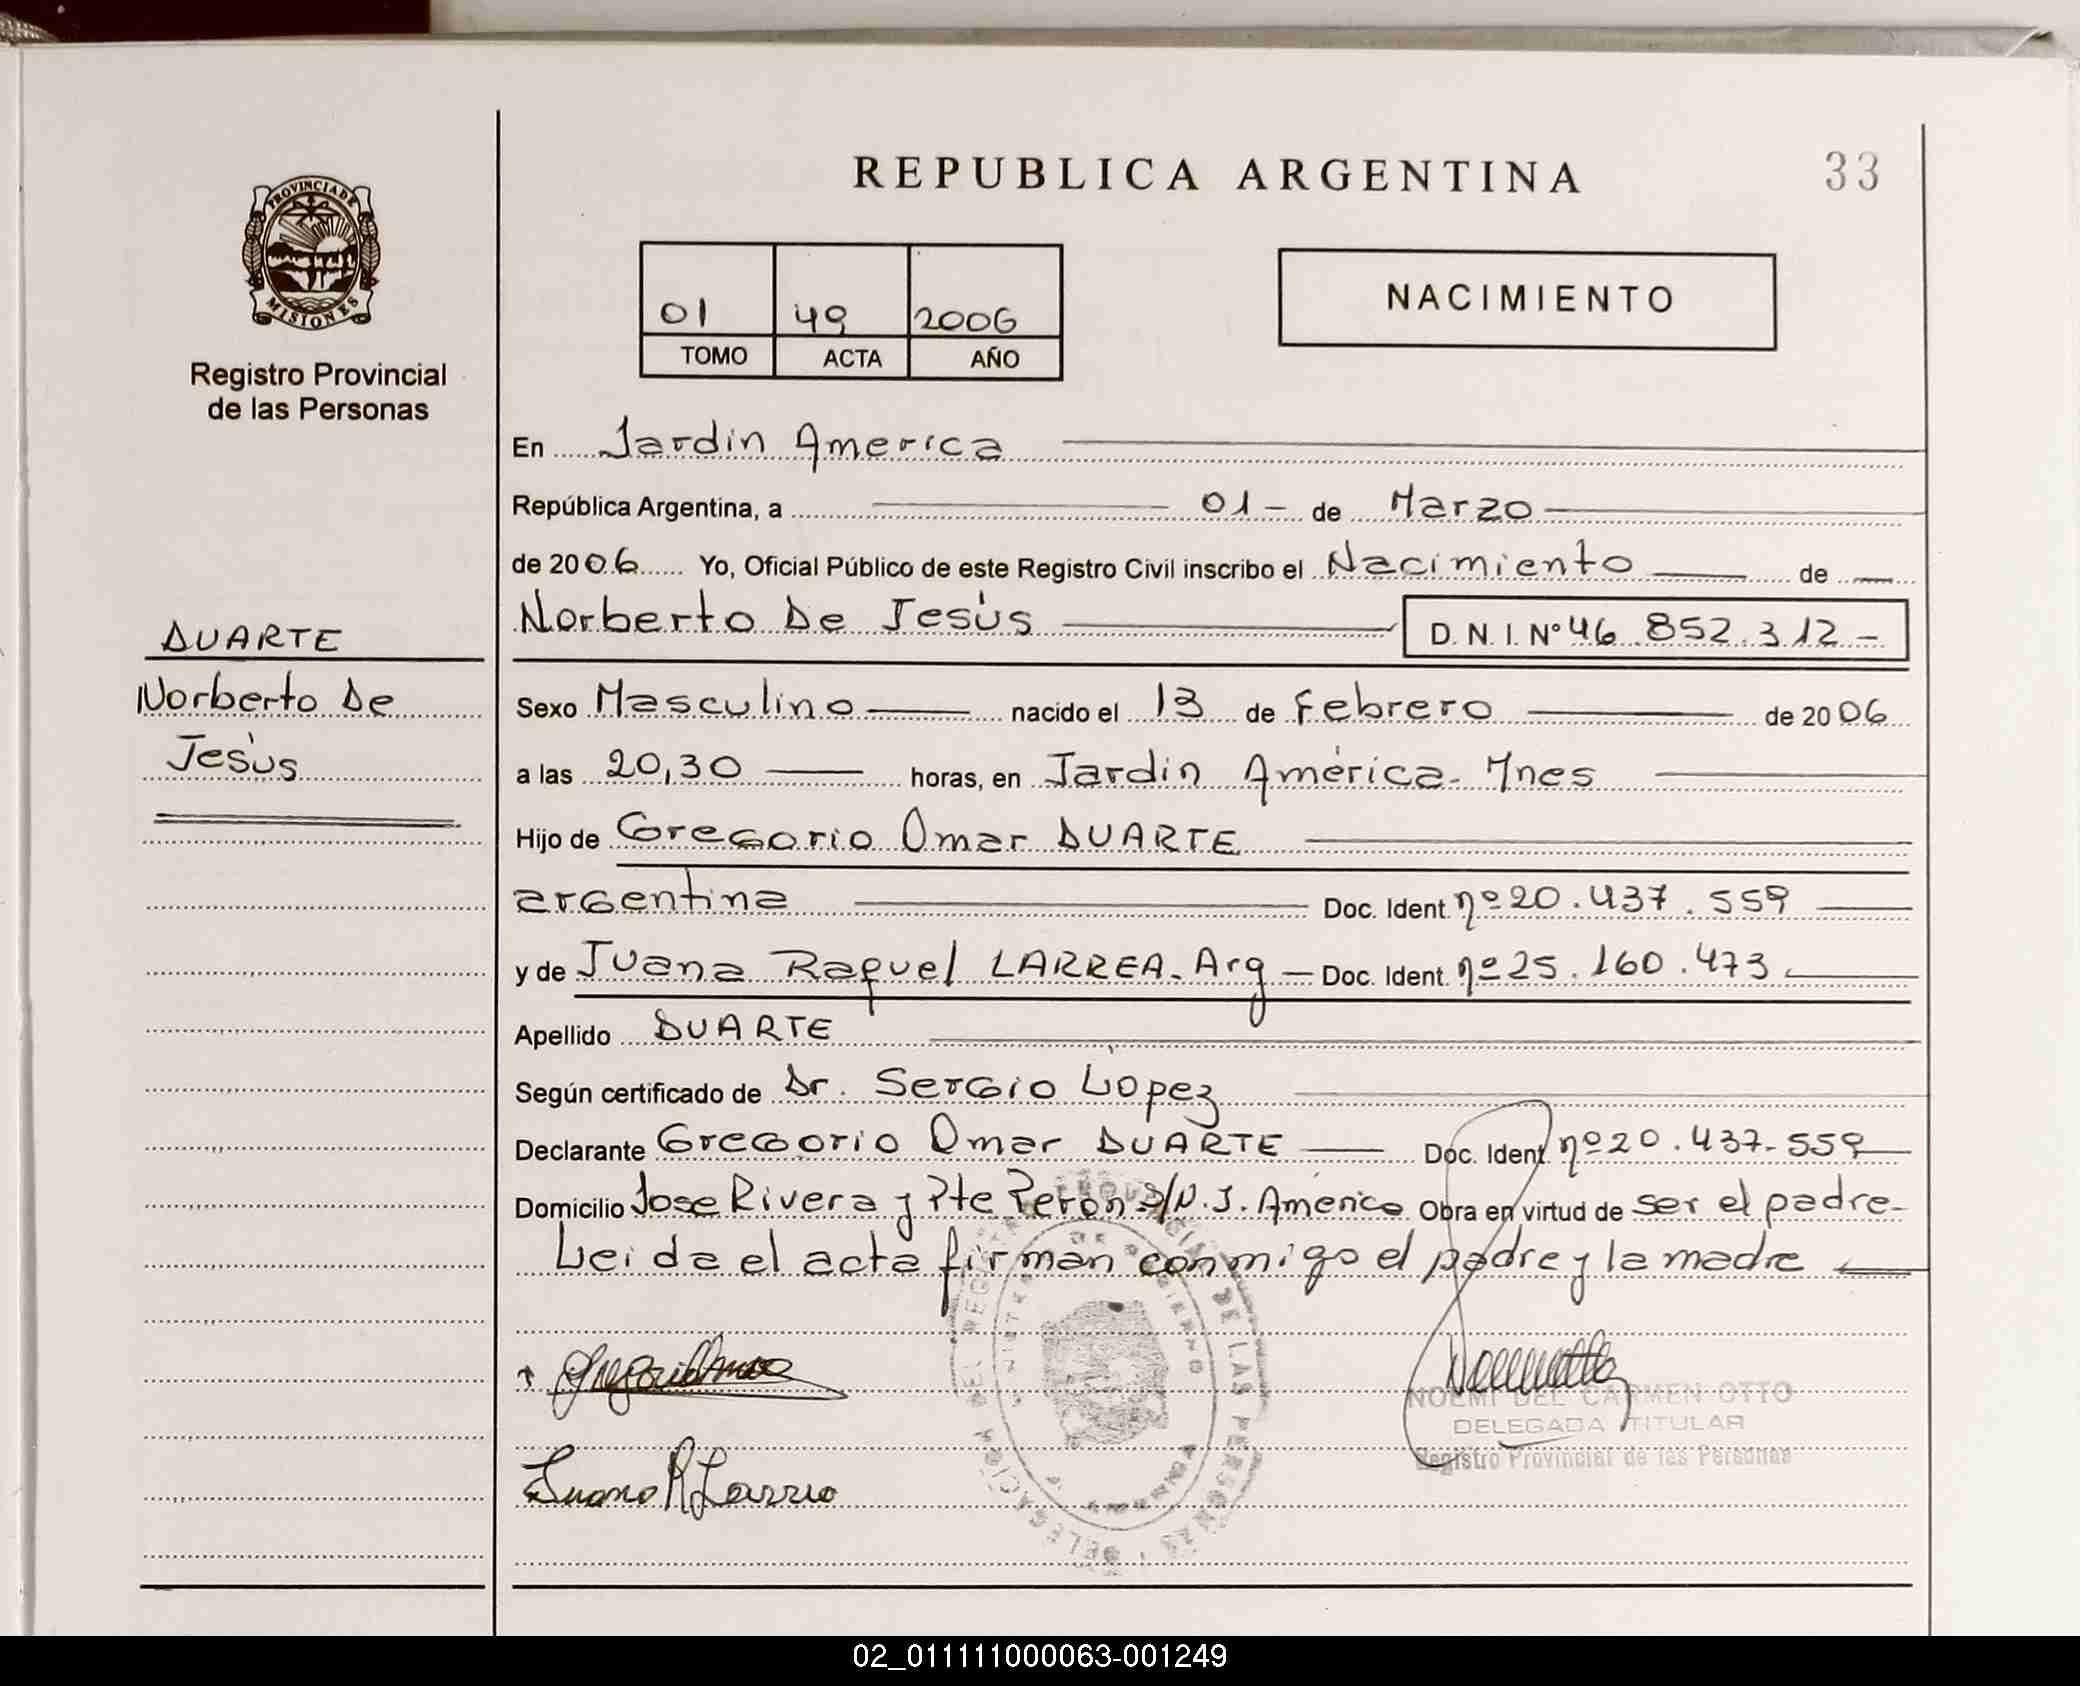 REPUBLICA ARGENTINA
33
PROVINCIA DE
MISIONES
Registro Provincial
de las Personas
01 49 2006
TOMO ACTA AÑO
NACIMIENTO
En Jardin America
República Argentina, a 01 - de Marzo
de 2006 Yo, Oficial Público de este Registro Civil inscribo el Nacimiento de
Norberto De Jesús D. N. I. Nº 46.852.312.-
DUARTE
Norberto De
Jesús
Sexo Masculino nacido el 13 de Febrero de 2006
a las 20,30 horas, en Jardin América - Mnes
Hijo de Gregorio Omar DUARTE
argentina Doc. Ident. nº 20.437.559
y de Juana Raquel LARREA. Arg - Doc. Ident. nº 25.160.473
Apellido DUARTE
Según certificado de Dr. Sergio López
Declarante Gregorio Omar DUARTE Doc. Ident. nº 20.437.559
Domicilio Jose Rivera y Pte Peron S/N. J. América Obra en virtud de ser el padre-
Leida el acta firman conmigo el padre y la madre
Juana R Larrea
NOEMI DEL CARMEN OTTO
DELEGADA TITULAR
Registro Provincial de las Personas
02_011111000063-001249